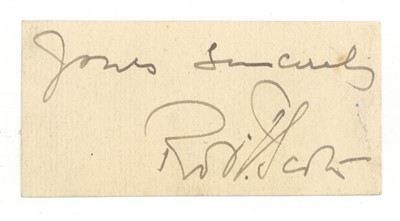 Yours Sincerely
Robt. F. Scott